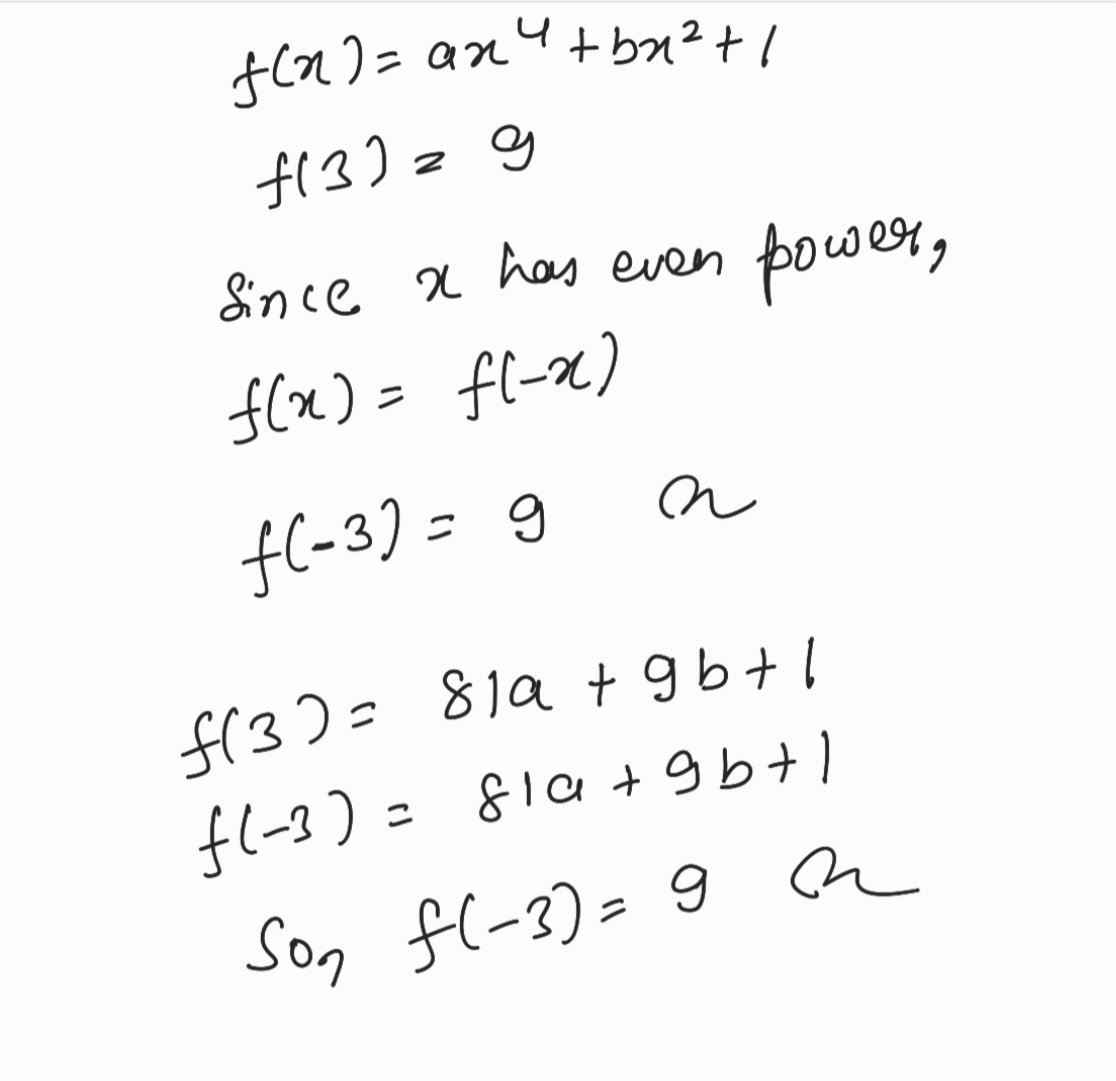 f(x) = ax⁴ + bx² + 1
f(3) = 9
Since x has even power,
f(x) = f(-x)
f(-3) = 9
f(3) = 81a + 9b + 1
f(-3) = 81a + 9b + 1
So, f(-3) = 9